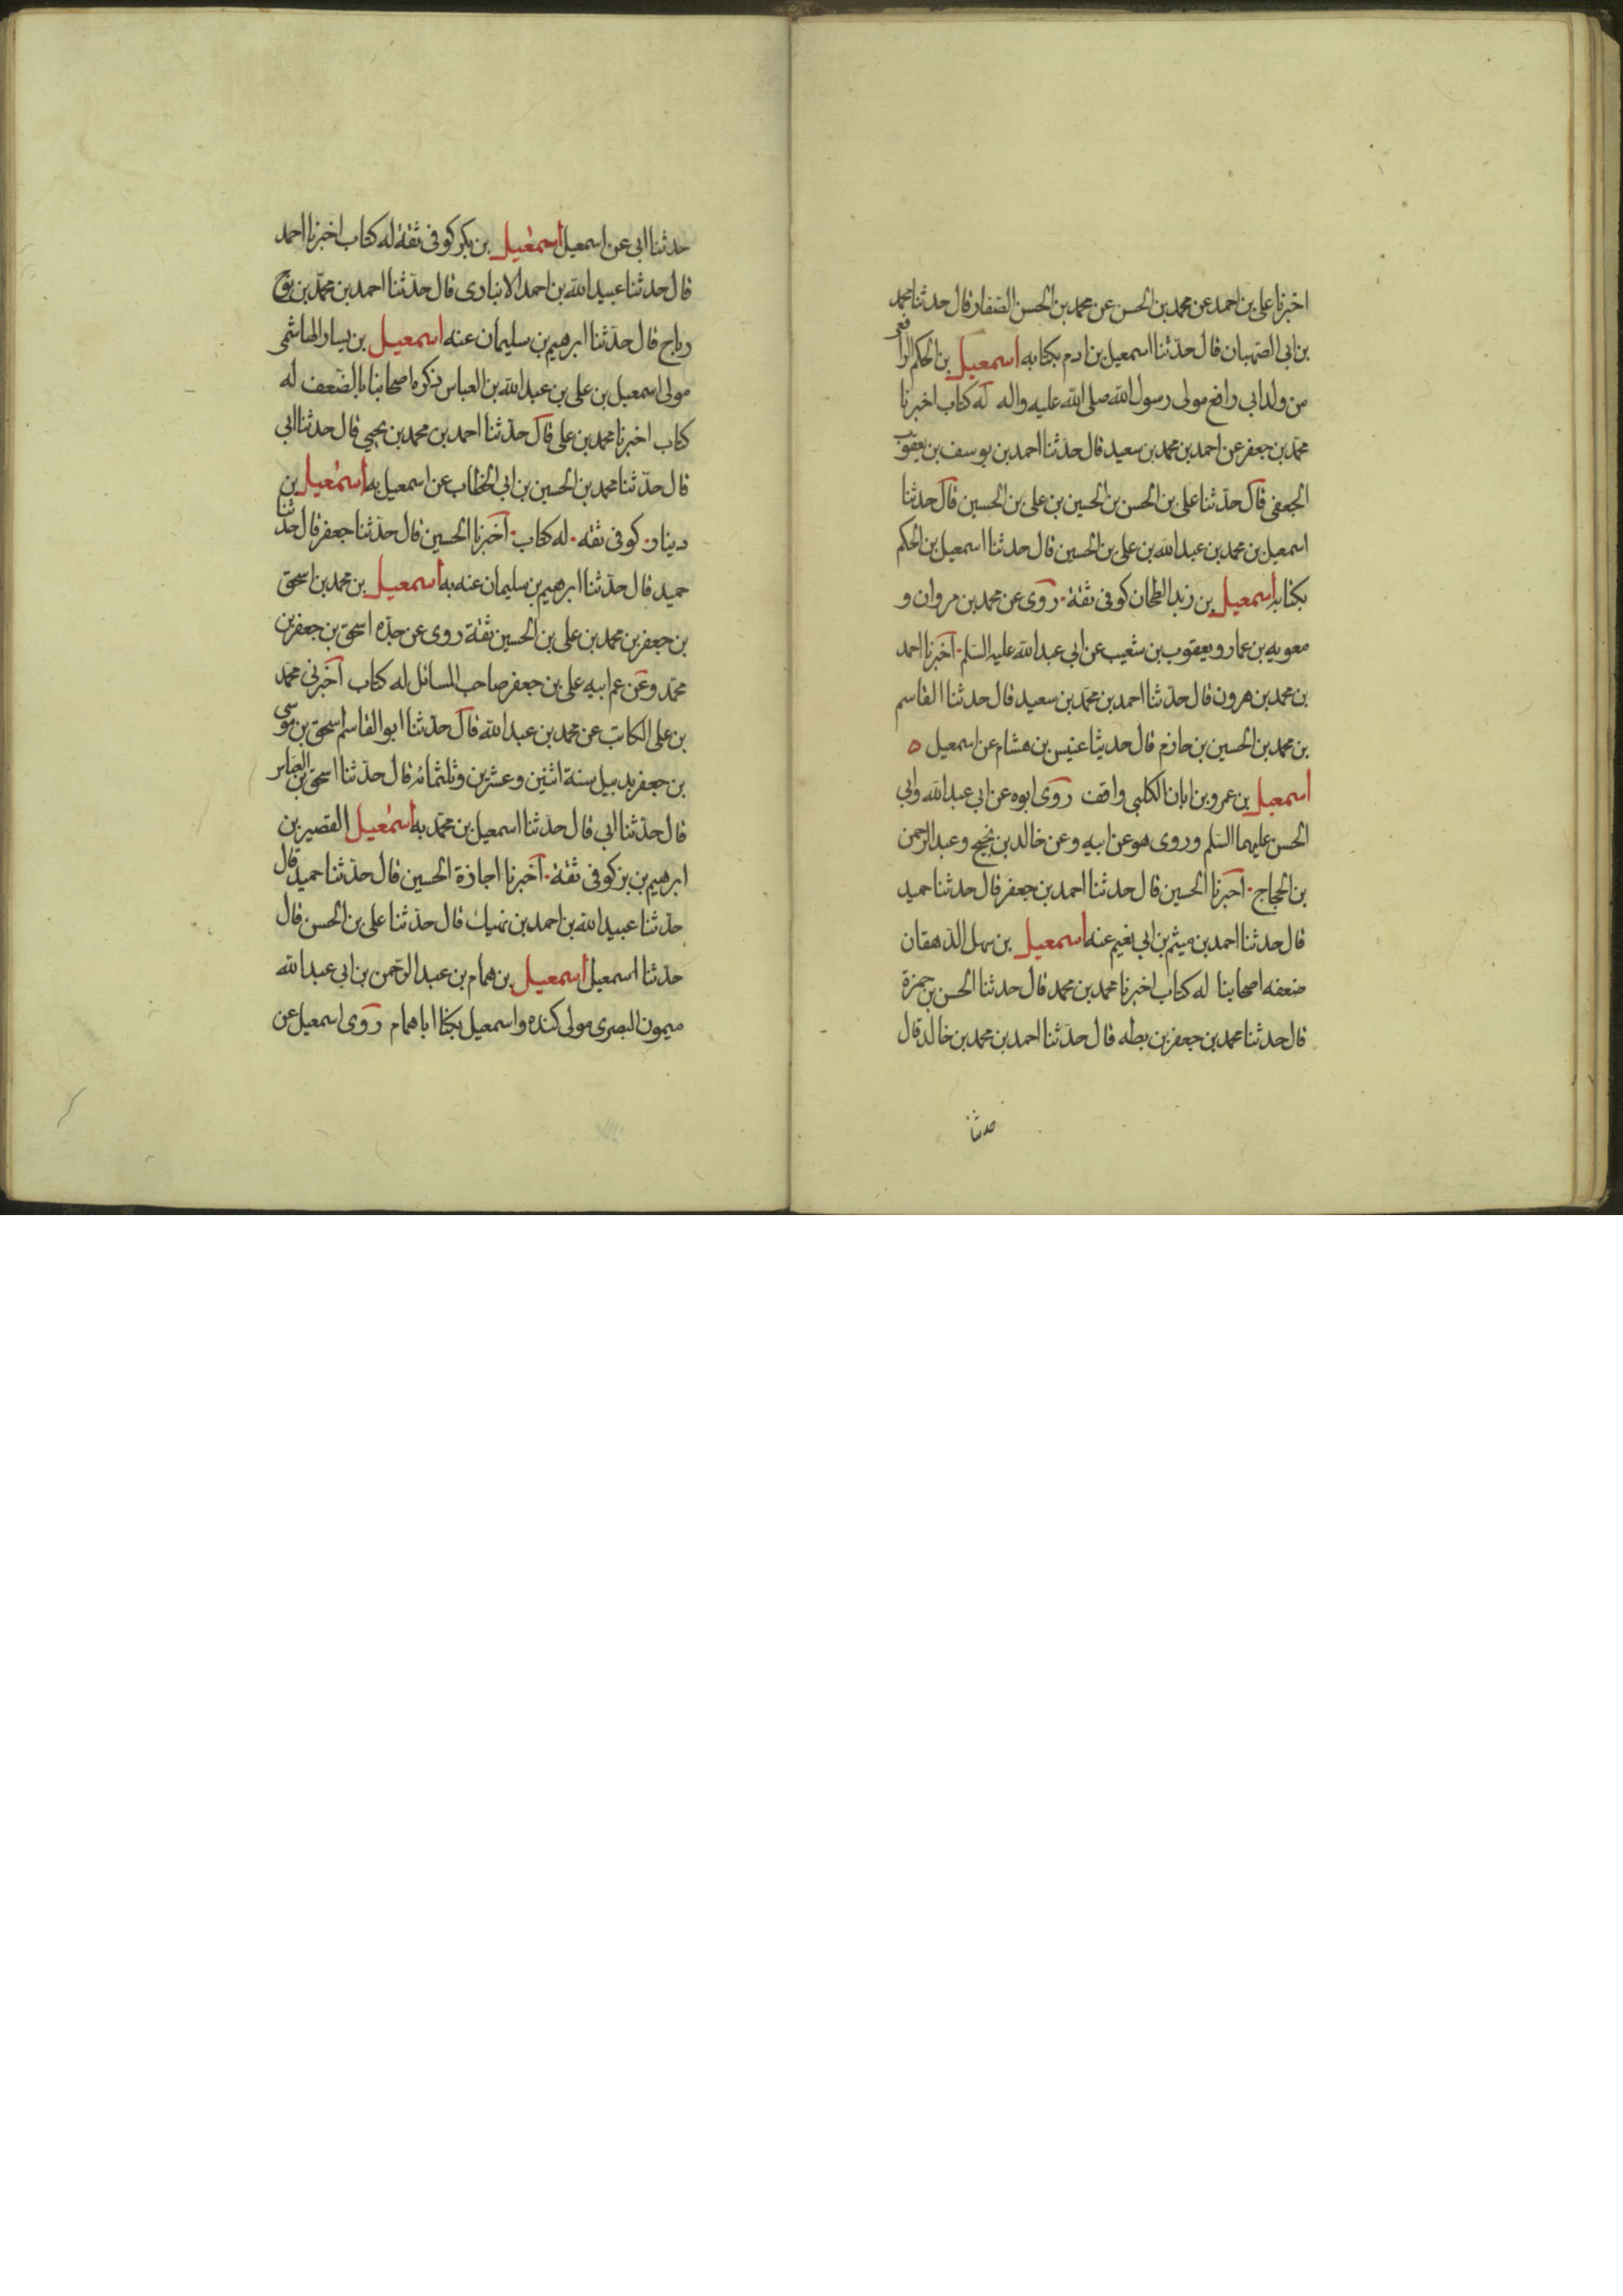 اخبرنا على بن احمد عن محمد بن الحسن عن محمد بن الحسن الصفار قال حدثنا محمد
بن ابى الصهبان قال حدثنا اسمعيل بن ادم بكتابه اسمعيل بن الحكم الرافعى
من ولد ابى رافع مولى رسول الله صلى الله عليه واله له كتاب اخبرنا
محمد بن جعفر عن احمد بن محمد بن سعيد قال حدثنا احمد بن يوسف بن يعقوب
الجعفى قال حدثنا على بن الحسن بن الحسين بن على بن الحسين قال حدثنا
اسمعيل بن محمد بن عبد الله بن على بن الحسين قال حدثنا اسمعيل بن الحكم
بكتابه اسمعيل بن زيد الطحان كوفى ثقة روى عن محمد بن مروان و
معويه بن عمار ويعقوب بن شعيب عن ابى عبد الله عليه السلم اخبرنا احمد
بن محمد بن هرون قال حدثنا احمد بن محمد بن سعيد قال حدثنا القاسم
بن محمد بن الحسين بن حازم قال حدثنا عبيس بن هشام عن اسمعيل ه
اسمعيل بن عمرو بن ابان الكلبى واقف روى ابوه عن ابى عبد الله وابى
الحسن عليهما السلم وروى هو عن ابيه وعن خالد بن نجيح وعبد الرحمن
بن الحجاج اخبرنا الحسين قال حدثنا احمد بن جعفر قال حدثنا حميد
قال حدثنا احمد بن ميثم بن ابى نعيم عنه اسمعيل بن سهل الدهقان
ضعفه اصحابنا له كتاب اخبرنا محمد بن محمد قال حدثنا الحسن بن حمزة
قال حدثنا محمد بن جعفر بن بطه قال حدثنا احمد بن محمد بن خالد قال
حدثنا
حدثنا ابى عن اسمعيل اسمعيل بن بكر كوفى ثقة له كتاب اخبرنا احمد
قال حدثنا عبيد الله بن احمد الانبارى قال حدثنا احمد بن محمد بن
رباح قال حدثنا ابرهيم بن سليمان عنه اسمعيل بن يسار الهاشمى
مولى اسمعيل بن على بن عبد الله بن العباس ذكره اصحابنا بالضعف له
كتاب اخبرنا محمد بن على قال حدثنا احمد بن محمد بن يحيى قال حدثنا ابى
قال حدثنا محمد بن الحسين بن ابى الخطاب عن اسمعيل به اسمعيل بن
دينار كوفى ثقه له كتاب اخبرنا الحسين قال حدثنا جعفر قال حدثنا
حميد قال حدثنا ابرهيم بن سليمان عنه به اسمعيل بن محمد بن اسحق
بن جعفر بن محمد بن على بن الحسين ثقة روى عن جده اسحق بن جعفر بن
محمد وعن عم ابيه على بن جعفر صاحب المسائل له كتاب اخبرنى محمد
بن على الكاتب عن محمد بن عبد الله قال حدثنا ابو القاسم اسحق بن موسى
بن جعفر بدبيل سنة اثنين وعشرين وثلثمائه قال حدثنا اسحق بن العباس
قال حدثنا ابى قال حدثنا اسمعيل بن محمد به اسمعيل القصير بن
ابرهيم بن بز كوفى ثقة اخبرنا اجازة الحسين قال حدثنا حميد قال
حدثنا عبيد الله بن احمد بن نهيك قال حدثنا على بن الحسن قال
حدثنا اسمعيل اسمعيل بن همام بن عبد الرحمن بن ابى عبد الله
ميمون البصرى مولى كنده واسمعيل يكنا ابا همام روى اسمعيل عن